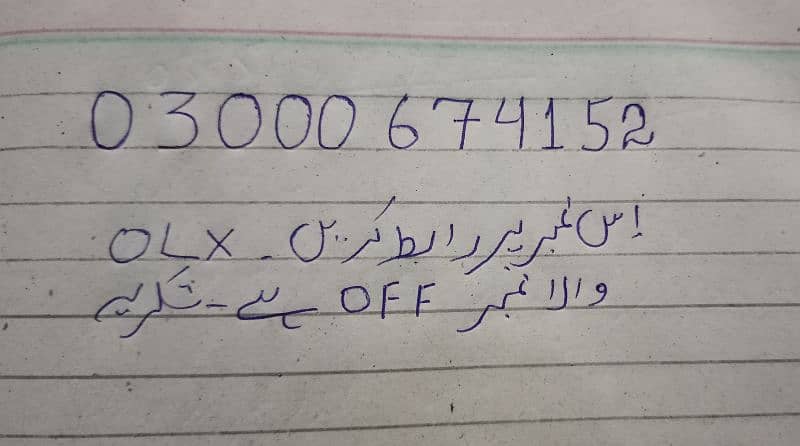 03000674152
اِس نمبر پر رابطہ کریں۔ OLX
والا نمبر OFF ہے۔ شکریہ